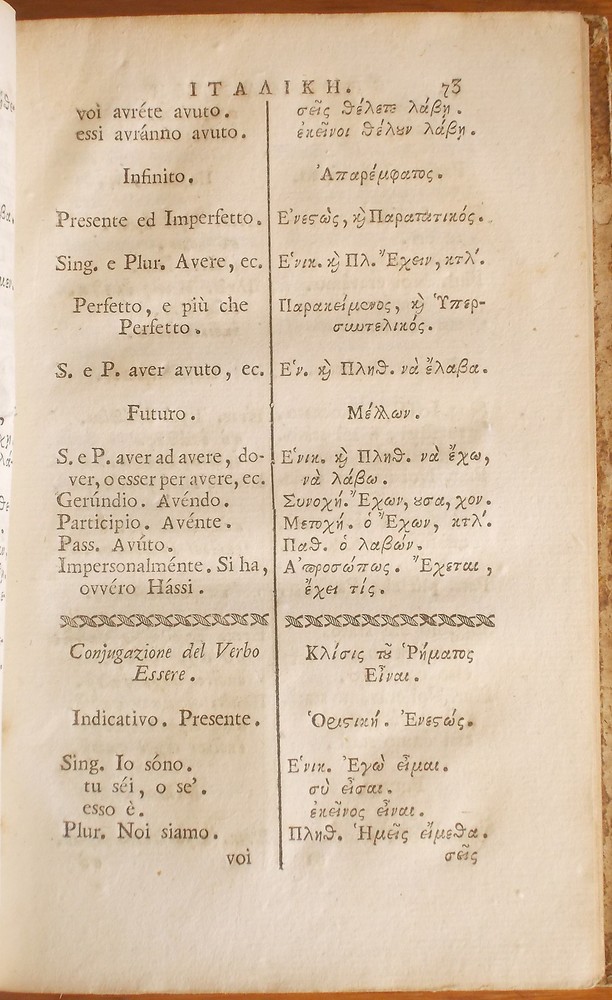 ΙΤΑΛΙΚΗ. 73
voi avréte avuto.
essi avránno avuto.
Infinito.
Presente ed Imperfetto.
Sing. e Plur. Avere, ec.
Perfetto, e più che
Perfetto.
S. e P. aver avuto, ec.
Futuro.
S. e P. aver ad avere, do-
ver, o esser per avere, ec.
Gerúndio. Avéndo.
Participio. Avénte.
Pass. Avúto.
Impersonalménte. Si ha,
ovvéro Hássi.
Conjugazione del Verbo
Essere.
Indicativo. Presente.
Sing. Io sóno.
tu séi, o se'.
esso è.
Plur. Noi siamo.
voi
σεῖς θέλετε λάβῃ.
ἐκεῖνοι θέλȣν λάβῃ.
Ἀπαρέμφατος.
Ἐνεϛὼς, ϗ Παρατατικός.
Ἑνικ. ϗ Πλ. Ἔχειν, κτλ'.
Παρακείμενος, ϗ Ὑπερ-
συντελικός.
Ἑν. ϗ Πληθ. νὰ ἔλαβα.
Μέλλων.
Ἑνικ. ϗ Πληθ. νὰ ἔχω,
νὰ λάβω.
Συνοχή. Ἔχων, ȣσα, χον.
Μετοχή. ὁ Ἔχων, κτλ'.
Παθ. ὁ λαβών.
Ἀπροσώπως. Ἔχεται,
ἔχει τίς.
Κλίσις τȣ͂ Ῥήματος
Εἶναι.
Ὁριϛική. Ἐνεϛώς.
Ἑνικ. Ἐγὼ εἶμαι.
σὺ εἶσαι.
ἐκεῖνος εἶναι.
Πληθ. Ἡμεῖς εἴμεθα.
σεῖς